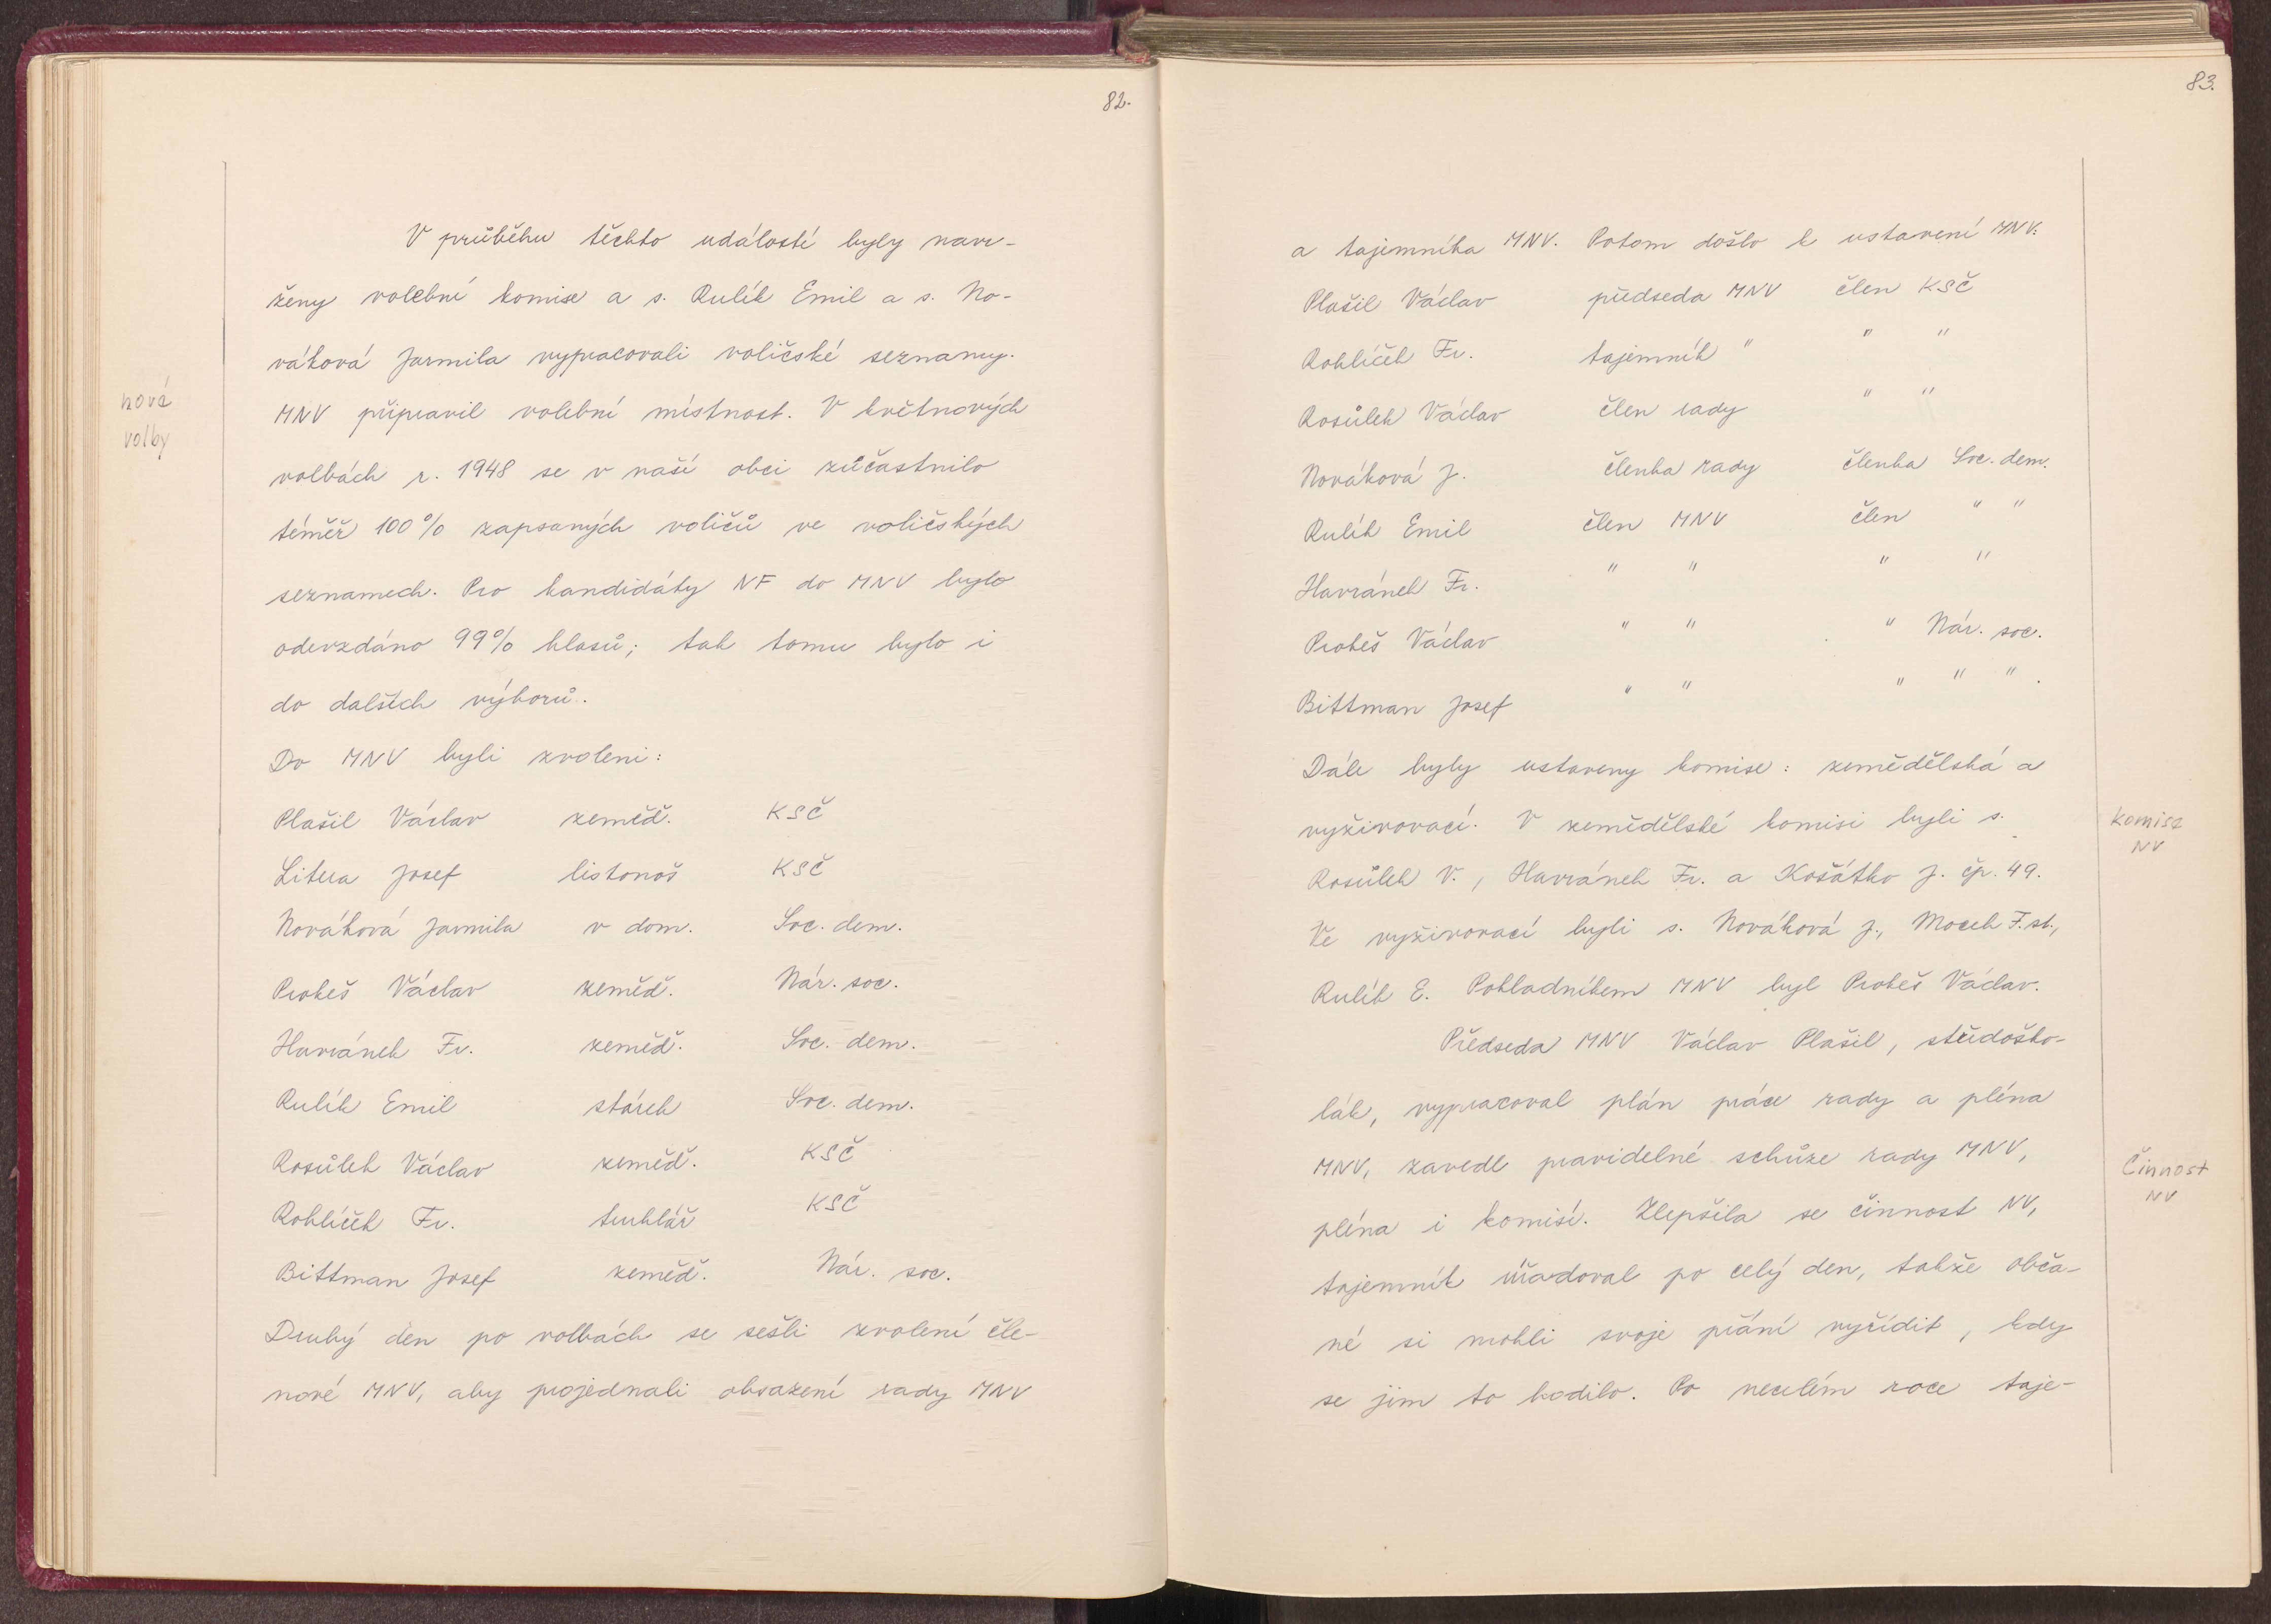 82.
V průběhu těchto událostí byly navr-
ženy volební komise a s. Rulík Emil a s. No-
váková Jarmila vypracovali voličské seznamy.
nová
volby
MNV připravil volební místnost. V květnových
volbách r. 1948 se v naší obci zúčastnilo
téměř 100% zapsaných voličů ve voličských
seznamech. Pro kandidáty NF do MNV bylo
odevzdáno 99% hlasů; tak tomu bylo i
do dalších výborů.
Do MNV byli zvoleni:
Plašil Václav zeměd. KSČ
Litera Josef listonoš KSČ
Nováková Jarmila v dom. Soc. dem.
Prokeš Václav zeměd. Nár. soc.
Havránek Fr. zeměd. Soc. dem.
Rulík Emil stárek Soc. dem.
Rosůlek Václav zeměd. KSČ
Rohlíček Fr. truhlář KSČ
Bittman Josef zeměd. Nár. soc.
Druhý den po volbách se sešli zvolení čle-
nové MNV, aby projednali obsazení rady MNV
83.
a tajemníka MNV. Potom došlo k ustavení MNV:
Plašil Václav předseda MNV člen KSČ
Rohlíček Fr. tajemník " " "
Rosůlek Václav člen rady " "
Nováková J. členka rady členka Soc. dem.
Rulík Emil člen MNV člen " "
Havránek Fr. " " " "
Prokeš Václav " " " Nár. soc.
Bittman Josef " " " " ".
Dále byly ustaveny komise: zemědělská a
vyživovací. V zemědělské komisi byli s.
komise
NV
Rosůlek V., Havránek Fr. a Košátko J. čp. 49.
Ve vyživovací byli s. Nováková J., Mocek F. st.,
Rulík E. Pokladníkem MNV byl Prokeš Václav.
Předseda MNV Václav Plašil, středoško-
lák, vypracoval plán práce rady a pléna
MNV, zavedl pravidelné schůze rady MNV,
Činnost
NV
pléna i komisí. Zlepšila se činnost NV,
tajemník úřadoval po celý den, takže obča-
né si mohli svoje přání vyřídit, kdy
se jim to hodilo. Po necelém roce taje-